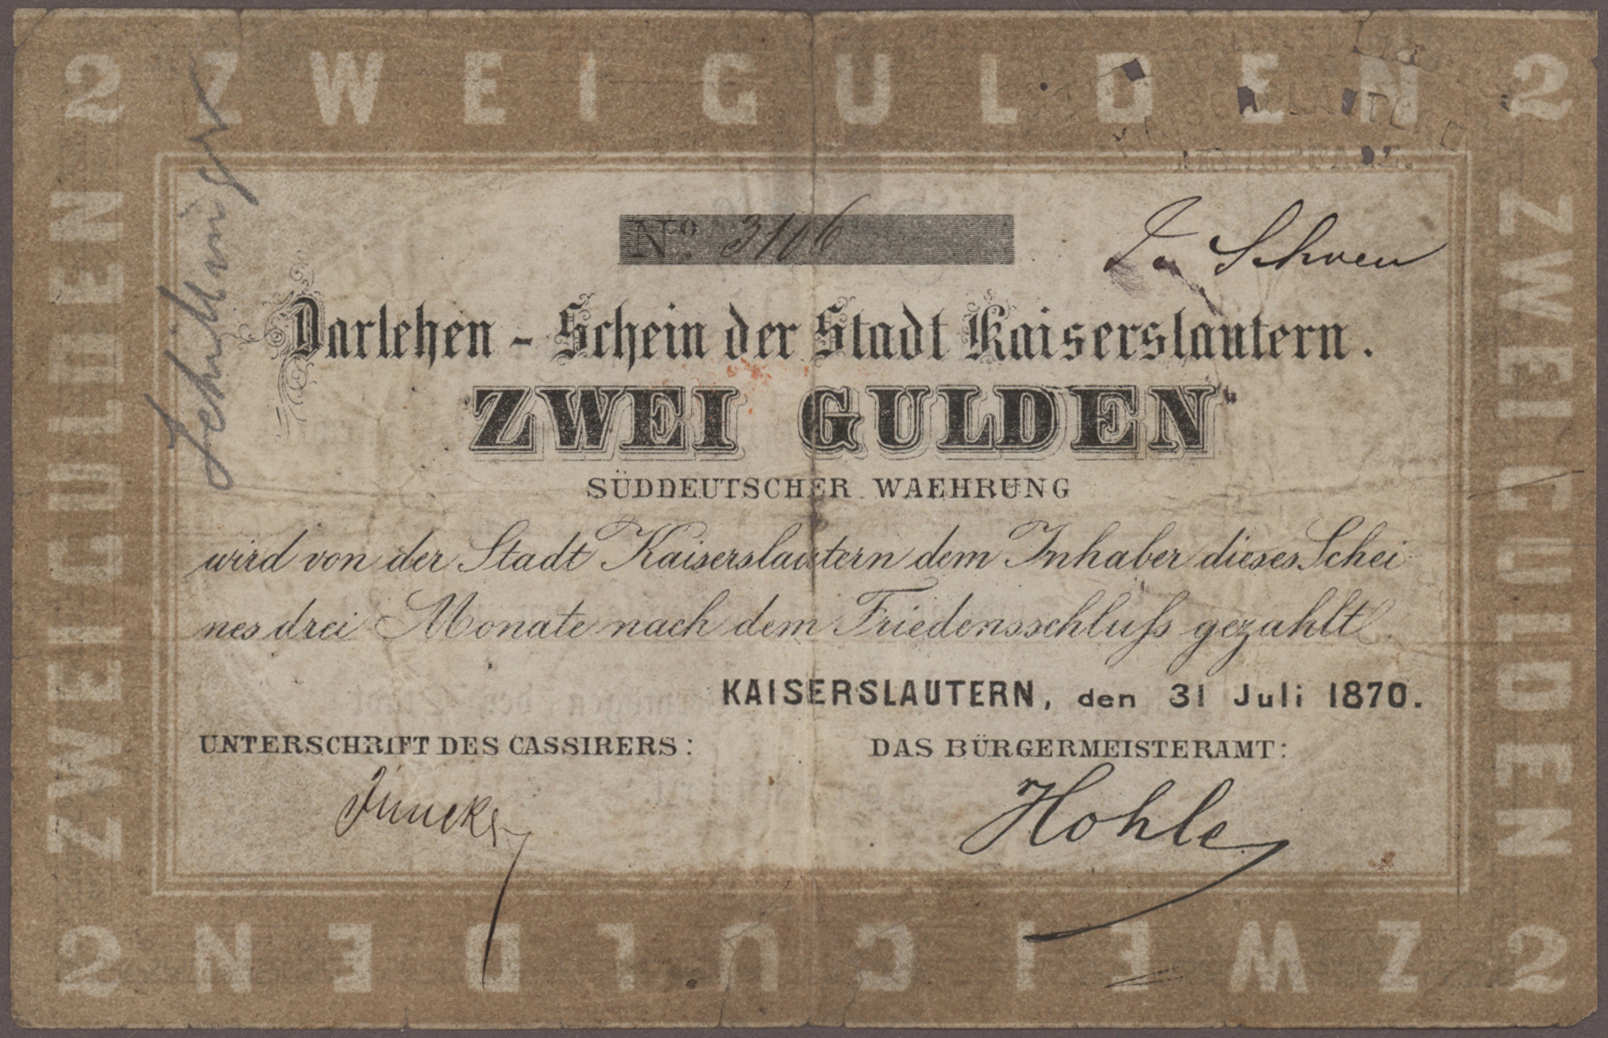 2 ZWEI GULDEN 2
ZWEI GULDEN
ZWEI GULDEN
No. 3106
Darlehen - Schein der Stadt Kaiserslautern.
ZWEI GULDEN
SÜDDEUTSCHER WAEHRUNG
wird von der Stadt Kaiserslautern dem Inhaber dieses Schei
nes drei Monate nach dem Friedensschluſs gezahlt.
KAISERSLAUTERN, den 31 Juli 1870.
UNTERSCHRIFT DES CASSIRERS:
DAS BÜRGERMEISTERAMT:
Hohle
2 ZWEI GULDEN 2